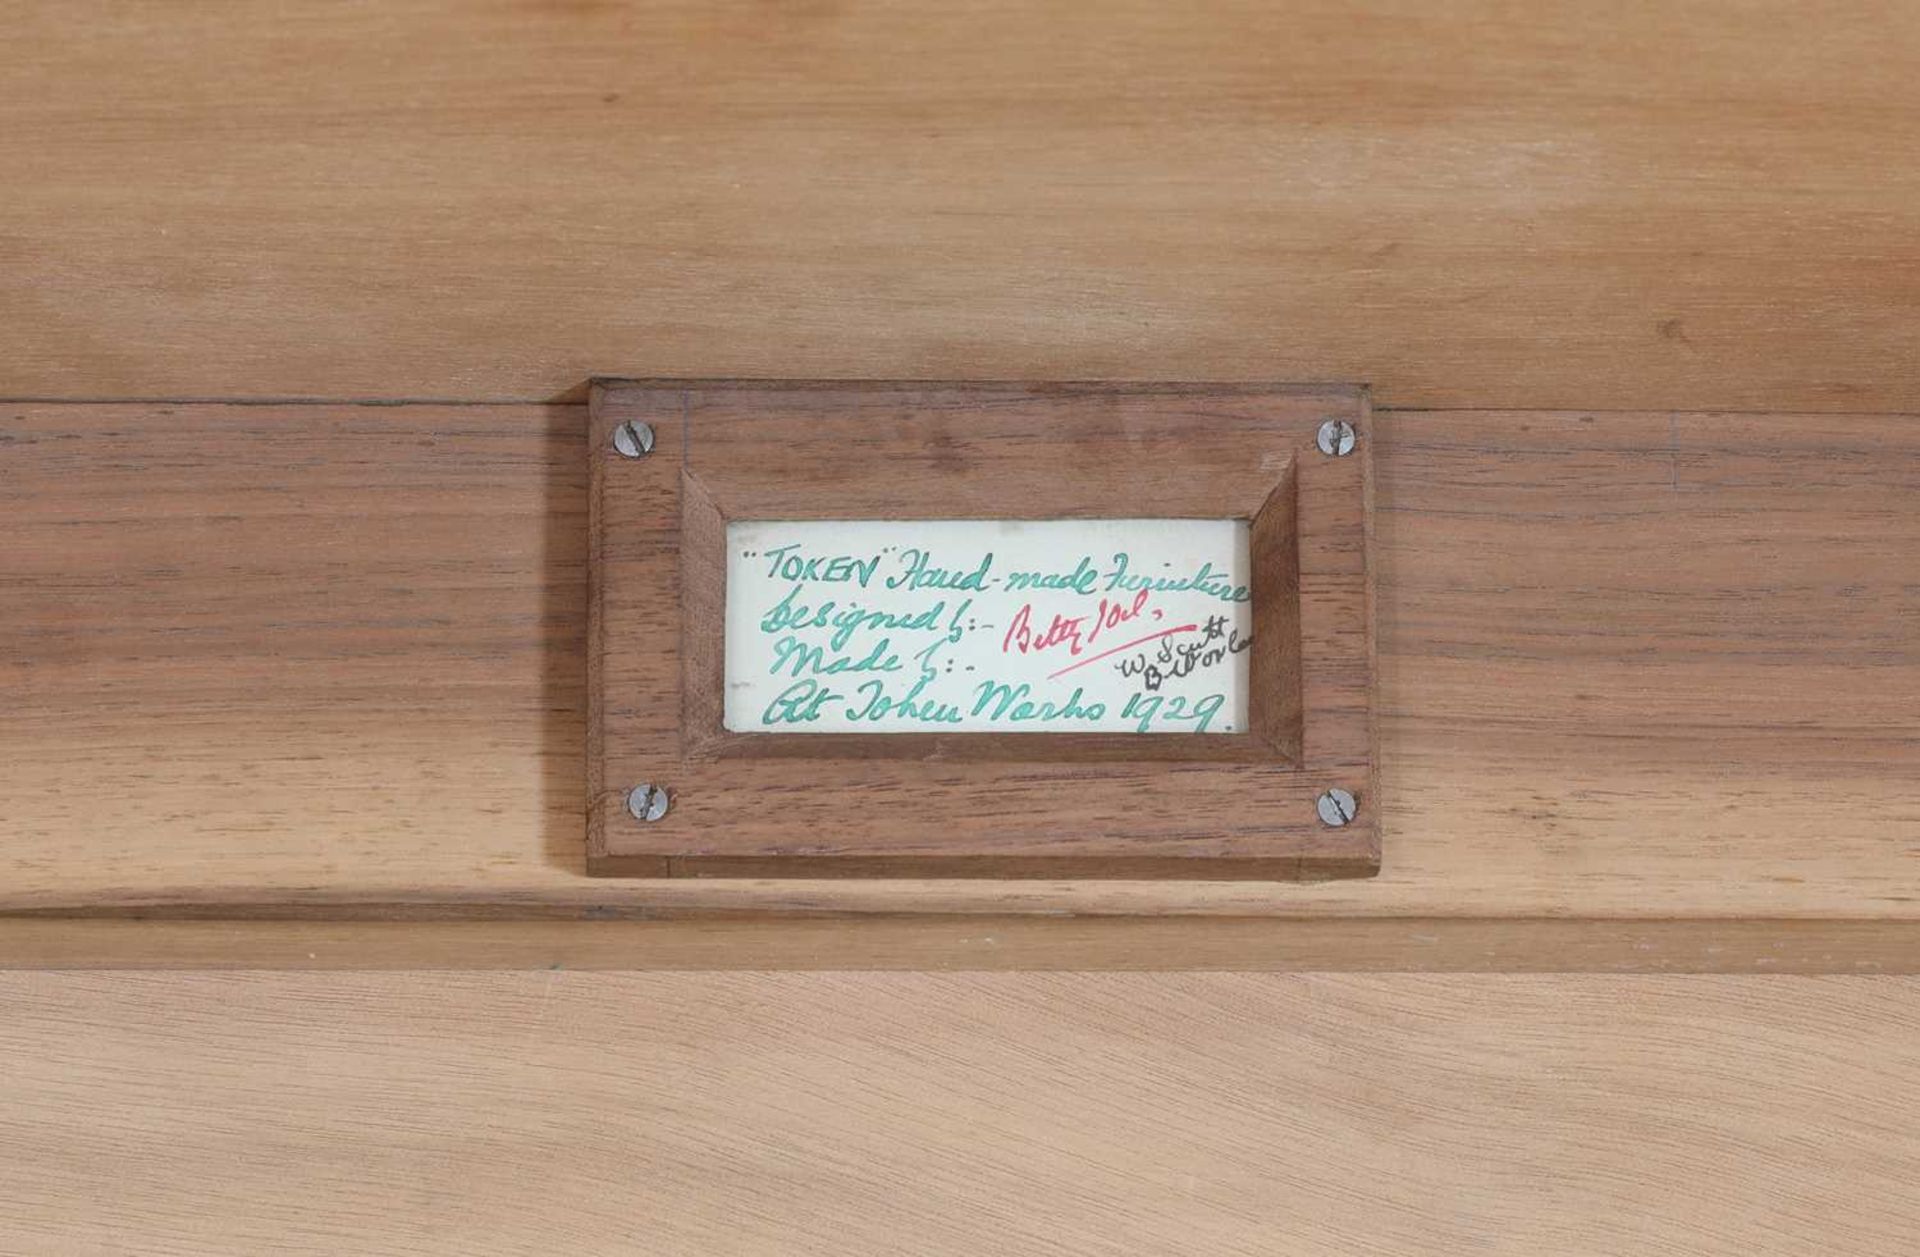 "TOKEN" Hand-made Furniture
Designed by:- Betty Joel,
Made by:- W Scutt
At Token Works 1929.